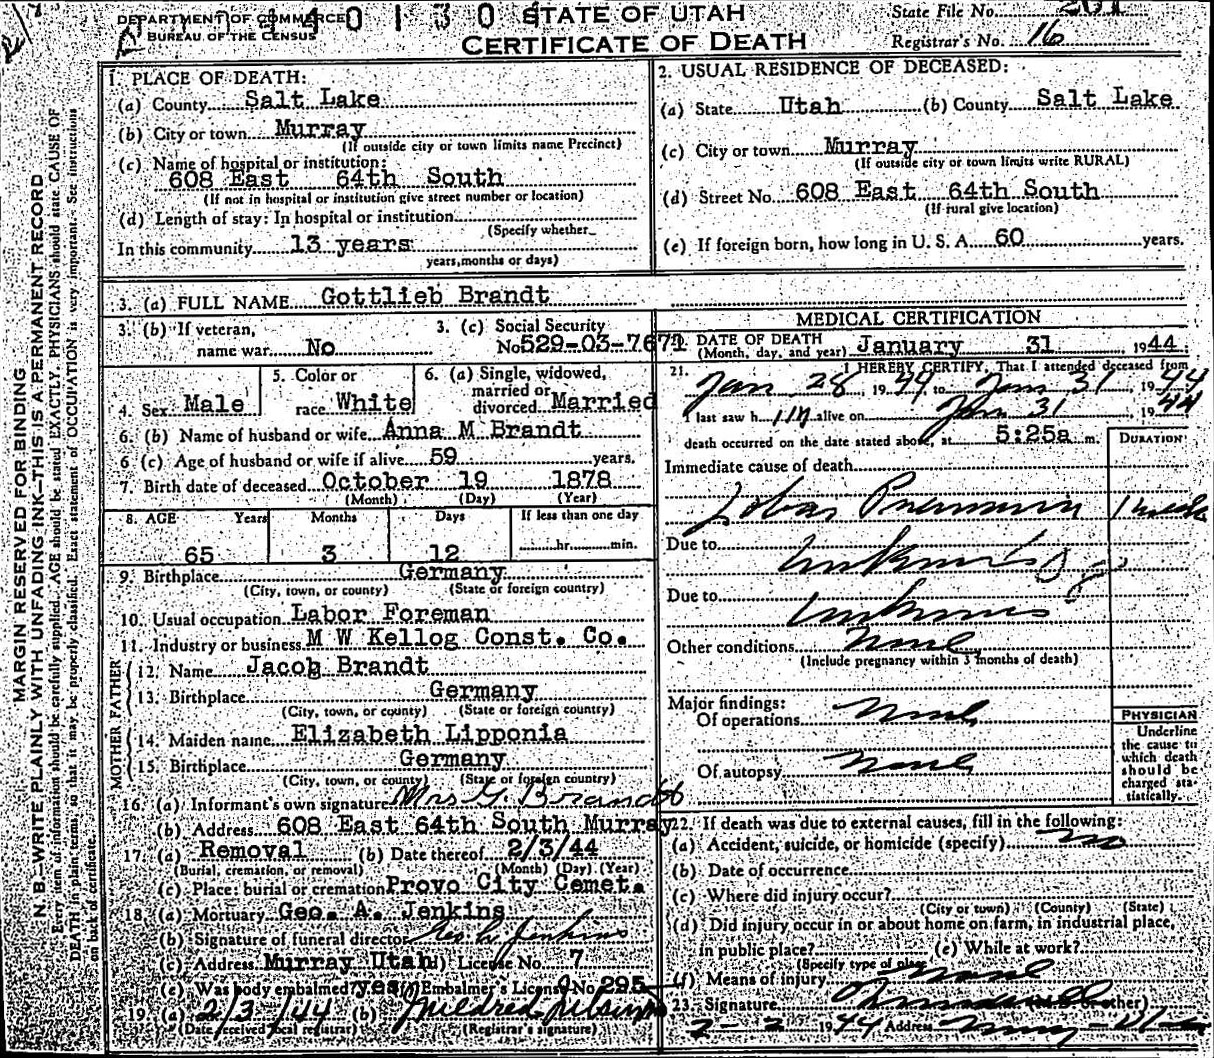 DEPARTMENT OF COMMERCE
BUREAU OF THE CENSUS
STATE OF UTAH
CERTIFICATE OF DEATH
State File No. 201
Registrar's No. 16
MARGIN RESERVED FOR BINDING
N. B.—WRITE PLAINLY WITH UNFADING INK—THIS IS A PERMANENT RECORD
Every item of information should be carefully supplied. AGE should be stated EXACTLY. PHYSICIANS should state CAUSE OF
DEATH in plain terms, so that it may be properly classified. Exact statement of OCCUPATION is very important. See instructions
on back of certificate.
1. PLACE OF DEATH:
(a) County Salt Lake
(b) City or town Murray
(If outside city or town limits name Precinct)
(c) Name of hospital or institution:
608 East 64th South
(If not in hospital or institution give street number or location)
(d) Length of stay: In hospital or institution
(Specify whether
In this community 13 years
years, months or days)
2. USUAL RESIDENCE OF DECEASED:
(a) State Utah (b) County Salt Lake
(c) City or town Murray
(If outside city or town limits write RURAL)
(d) Street No. 608 East 64th South
(If rural give location)
(e) If foreign born, how long in U. S. A. 60 years.
3. (a) FULL NAME Gottlieb Brandt
3. (b) If veteran,
name war No
3. (c) Social Security
No. 529-03-7671
4. Sex Male
5. Color or
race White
6. (a) Single, widowed,
married or
divorced Married
6. (b) Name of husband or wife Anna M Brandt
6 (c) Age of husband or wife if alive 59 years.
7. Birth date of deceased October 19 1878
(Month) (Day) (Year)
8. AGE Years Months Days If less than one day
65 3 12 hr. min.
9. Birthplace Germany
(City, town, or county) (State or foreign country)
10. Usual occupation Labor Foreman
11. Industry or business M W Kellog Const. Co.
FATHER
12. Name Jacob Brandt
13. Birthplace Germany
(City, town, or county) (State or foreign country)
MOTHER
14. Maiden name Elizabeth Lipponia
15. Birthplace Germany
(City, town, or county) (State or foreign country)
16. (a) Informant's own signature Mrs G. Brandt
(b) Address 608 East 64th South Murray
17. (a) Removal (b) Date thereof 2/3/44
(Burial, cremation, or removal) (Month) (Day) (Year)
(c) Place: burial or cremation Provo City Cemet.
18. (a) Mortuary Geo. A. Jenkins
(b) Signature of funeral director Geo. A. Jenkins
(c) Address Murray Utah (d) License No. 7
(e) Was body embalmed? yes (f) Embalmer's License No. 295
19. (a) 2/3/44 (b) Mildred
(Date received local registrar) (Registrar's signature)
MEDICAL CERTIFICATION
20. DATE OF DEATH
(Month, day, and year) January 31 1944
21. I HEREBY CERTIFY, That I attended deceased from
Jan 28, 1944 to Jan 31, 1944
last saw him alive on Jan 31, 1944
death occurred on the date stated above, at 5:25a m.
DURATION
Immediate cause of death
Lobar Pneumonia 1 week
Due to unknown
Due to unknown
Other conditions None
(Include pregnancy within 3 months of death)
Major findings:
Of operations None
Of autopsy None
PHYSICIAN
Underline
the cause to
which death
should be
charged sta-
tistically.
22. If death was due to external causes, fill in the following:
(a) Accident, suicide, or homicide (specify) no
(b) Date of occurrence
(c) Where did injury occur?
(City or town) (County) (State)
(d) Did injury occur in or about home on farm, in industrial place,
in public place? (e) While at work?
(Specify type of place)
(f) Means of injury None
23. Signature
2-2 1944 Address Murray - Utah